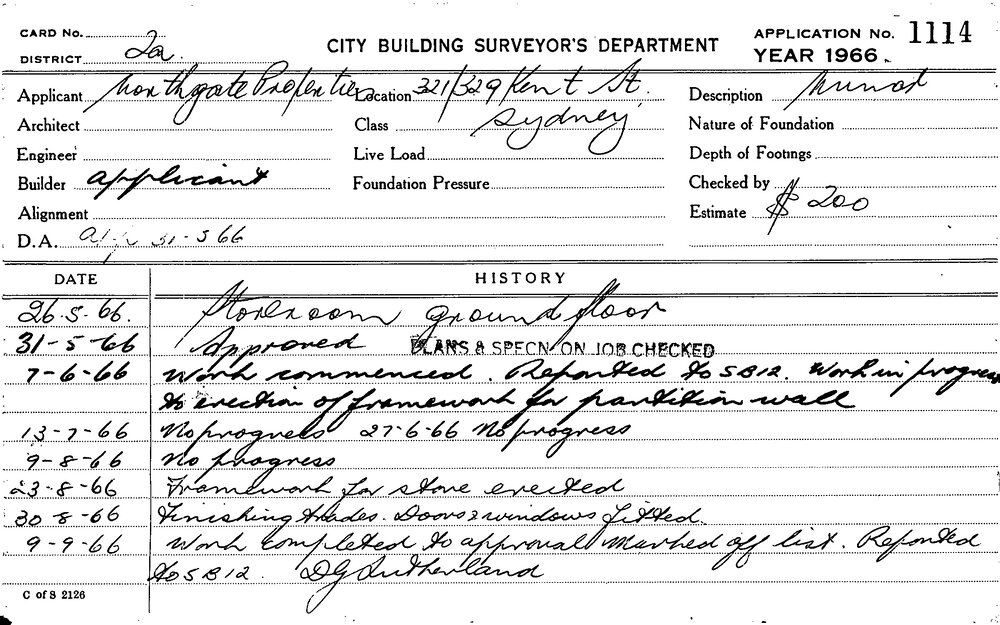 CARD No.
DISTRICT 2a
CITY BUILDING SURVEYOR'S DEPARTMENT
APPLICATION No. 1114
YEAR 1966.
Applicant Northgate Properties Location 321/329 Kent St. Description
Architect Class Sydney Nature of Foundation
Engineer Live Load Depth of Footings
Builder applicant Foundation Pressure Checked by
Alignment Estimate $ 200
D.A. 31-5 66
DATE HISTORY
26-5-66. Storeroom ground floor
31-5-66 Approved PLANS & SPECN. ON JOB CHECKED
7-6-66 Work commenced. Reported to SB12. Work in progress
to erection of framework for partition wall
13-7-66 No progress 27-6-66 No progress
9-8-66 No progress
23-8-66 Framework for store erected
30-8-66 Finishing trades. Doors & windows fitted.
9-9-66 Work completed to approval Marked off list. Reported
to SB12. DG Sutherland
C of S 2126